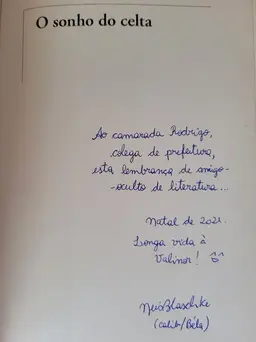 O sonho do celta
Ao camarada Rodrigo,
colega de prefeitura,
esta lembrança de amigo-
-oculto de literatura...
Natal de 2021.
Longa vida à
Valinor!
(Calib/Béla)